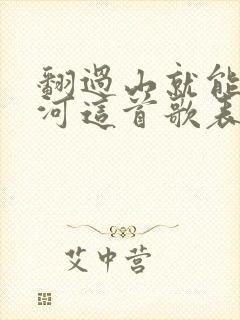 翻過山就能
河這首歌表
艾中營